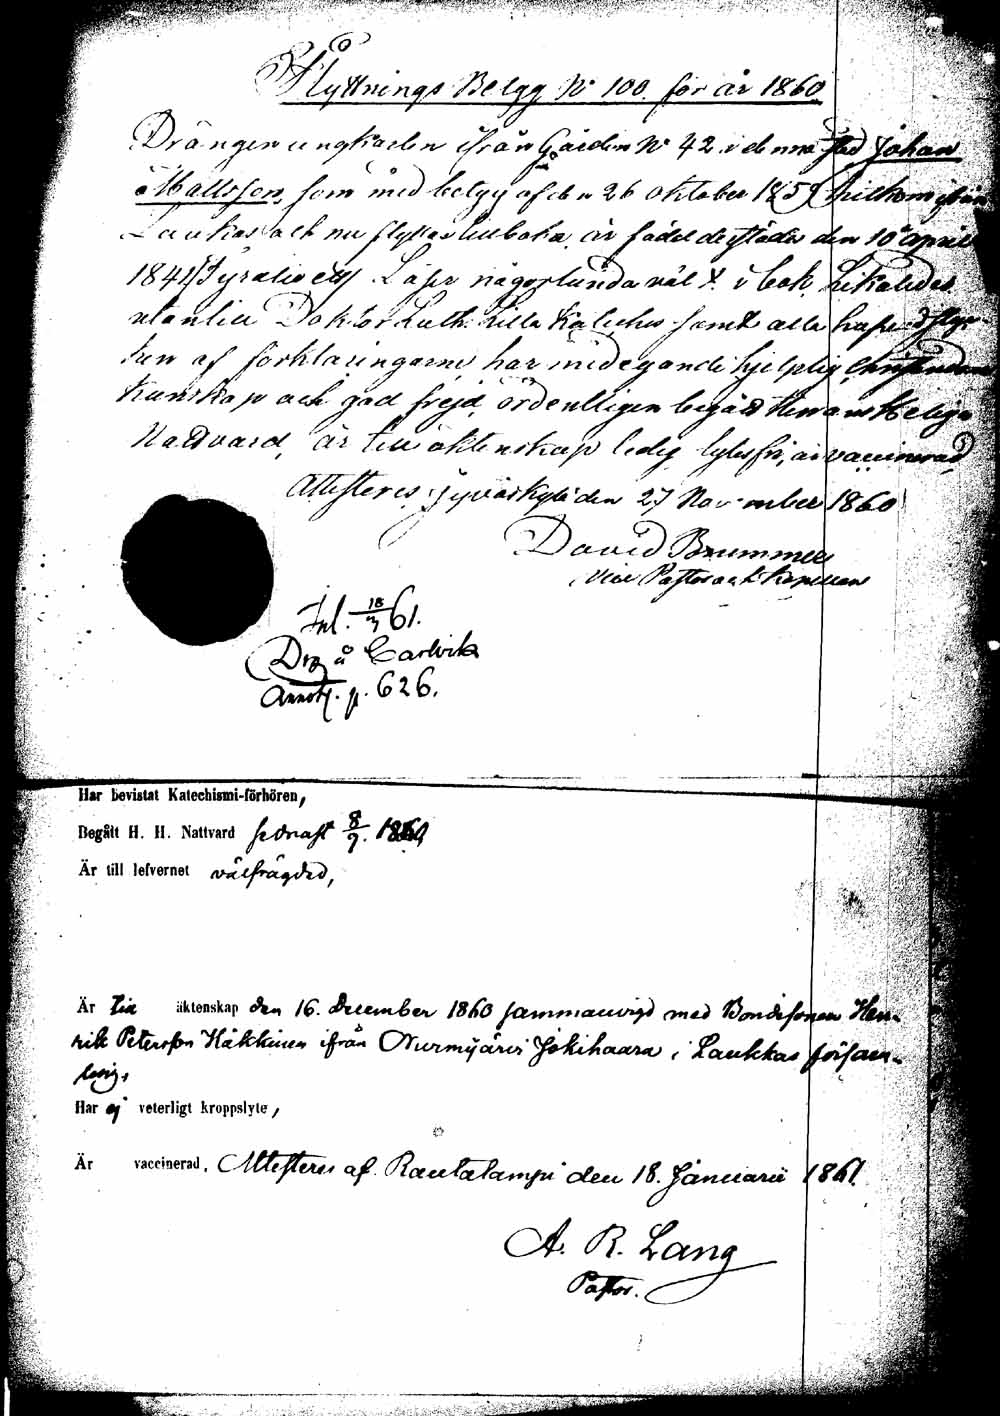 Flyttnings Betyg No 100 för år 1860
Drängen ungkarlen ifrån Gården No 42 i denna stad Johan
Mattsson, som med betyg af den 26 oktober 185 hitkom ifrån
Laukas och nu flyttar tillbaka, är född derstädes den 10 april
1841 Läser någorlunda väl i bok, likaledes
utantill Doktor Luth. Lilla Kateches samt
af förklaringarne, har nidegande hjelplig Christendoms
kunskap och god frejd, ordentligen begått Herrans Heliga
Nattvard, är till äktenskap ledig, lytesfri, är vaccinerad,
Attesteres Jyväskylä den 27 November 1860
David Brummer
Vice Pastor och Kapellan
Inl. 18/3 61.
Drg å Carlvik
Annot. p. 626.
Har bevistat Katechismi-förhören,
Begått H. H. Nattvard sednast 8/7. 1860
Är till lefvernet välfrägdad,
Är till äktenskap den 16. December 1860 sammanvigd med Bondesonen Hen-
rik Petersson Häkkinen ifrån Nurmijärvi Jokihaara i Laukkas försam-
ling,
Har ej veterligt kroppslyte,
Är vaccinerad. Attesteras af Rautalampi den 18. Januarii 1861.
A. R. Lang
Pastor.